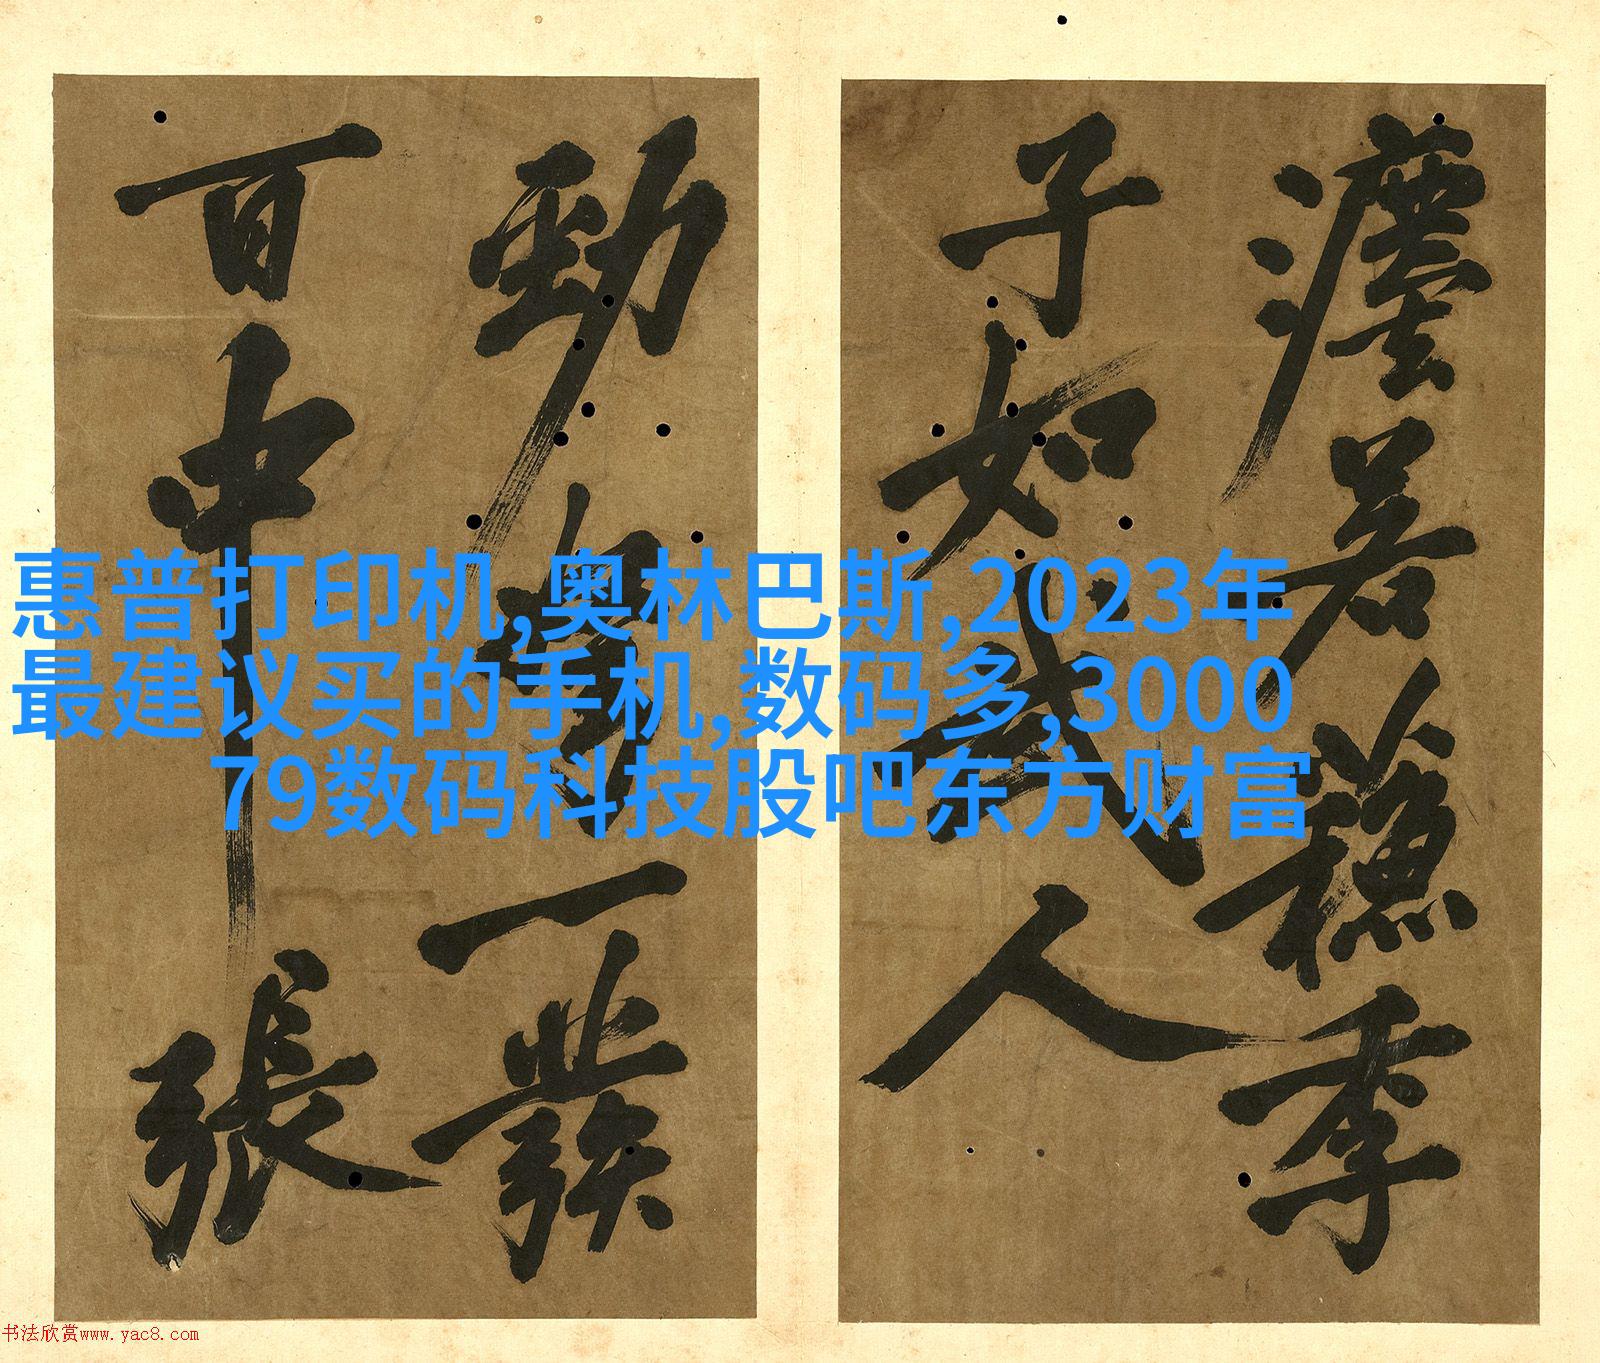 若蘇季
子如武人
勁弩一發
百中張
惠普打印机,奥林巴斯,2023年
最建议买的手机,数码多,3000
79数码科技股吧东方财富
书法欣赏www.yac8.com